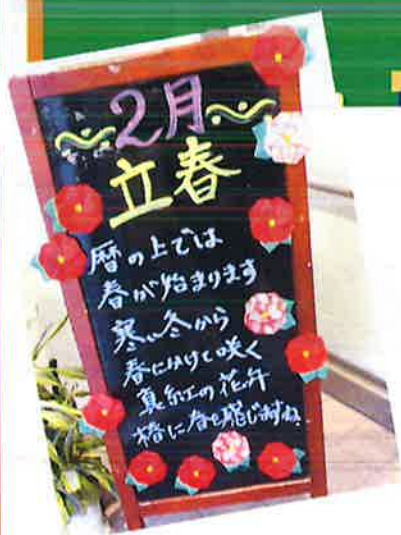 ～2月～
立春
暦の上では
春が始まります
寒い冬から
春にかけて咲く
真紅の花弁
椿に春を感じますね